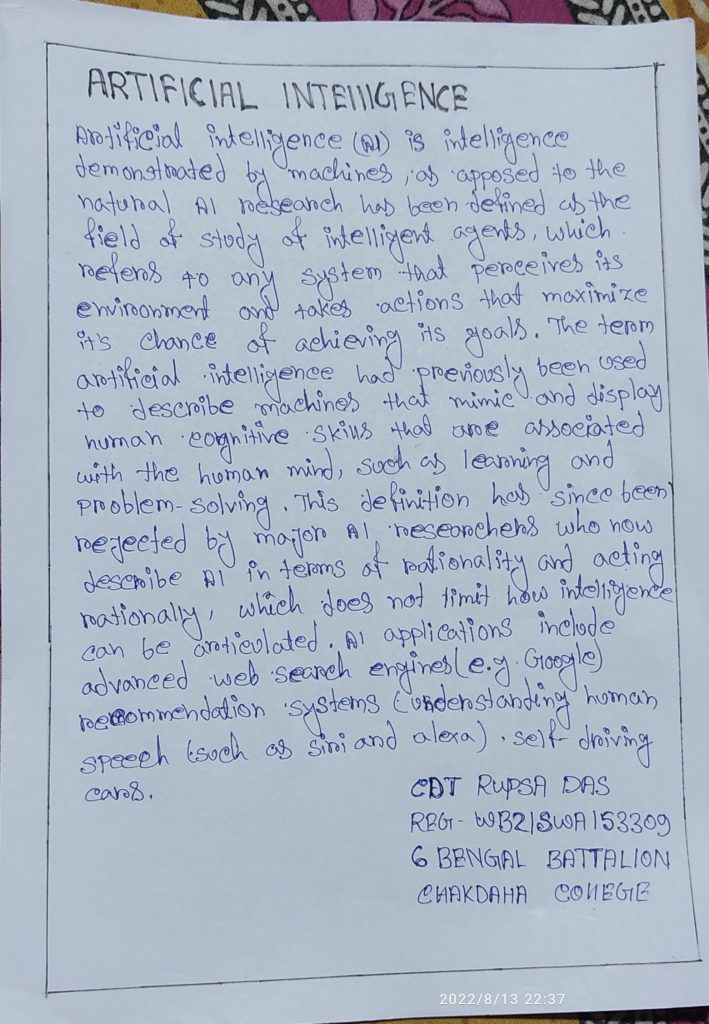 ARTIFICIAL INTEllIGENCE
Artificial intelligence (AI) is intelligence
demonstrated by machines, as apposed to the
natural AI research has been defined as the
field of study of intelligent agents, which
refers to any system that perceives its
environment and takes actions that maximize
it's chance of achieving its goals. The term
artificial intelligence had previously been used
to describe machines that mimic and display
human cognitive skills that are associated
with the human mind, such as learning and
problem-solving. This definition has since been
rejected by major AI researchers who now
describe AI in terms of rationality and acting
rationally, which does not limit how intelligence
can be articulated. AI applications include
advanced web search engines (e.g. Google)
recommendation systems (understanding human
speech (such as siri and alexa). self-driving
cars.
CDT RUPSA DAS
REG - WB21SWA153309
6 BENGAL BATTALION
CHAKDAHA COllEGE
2022/8/13 22:37